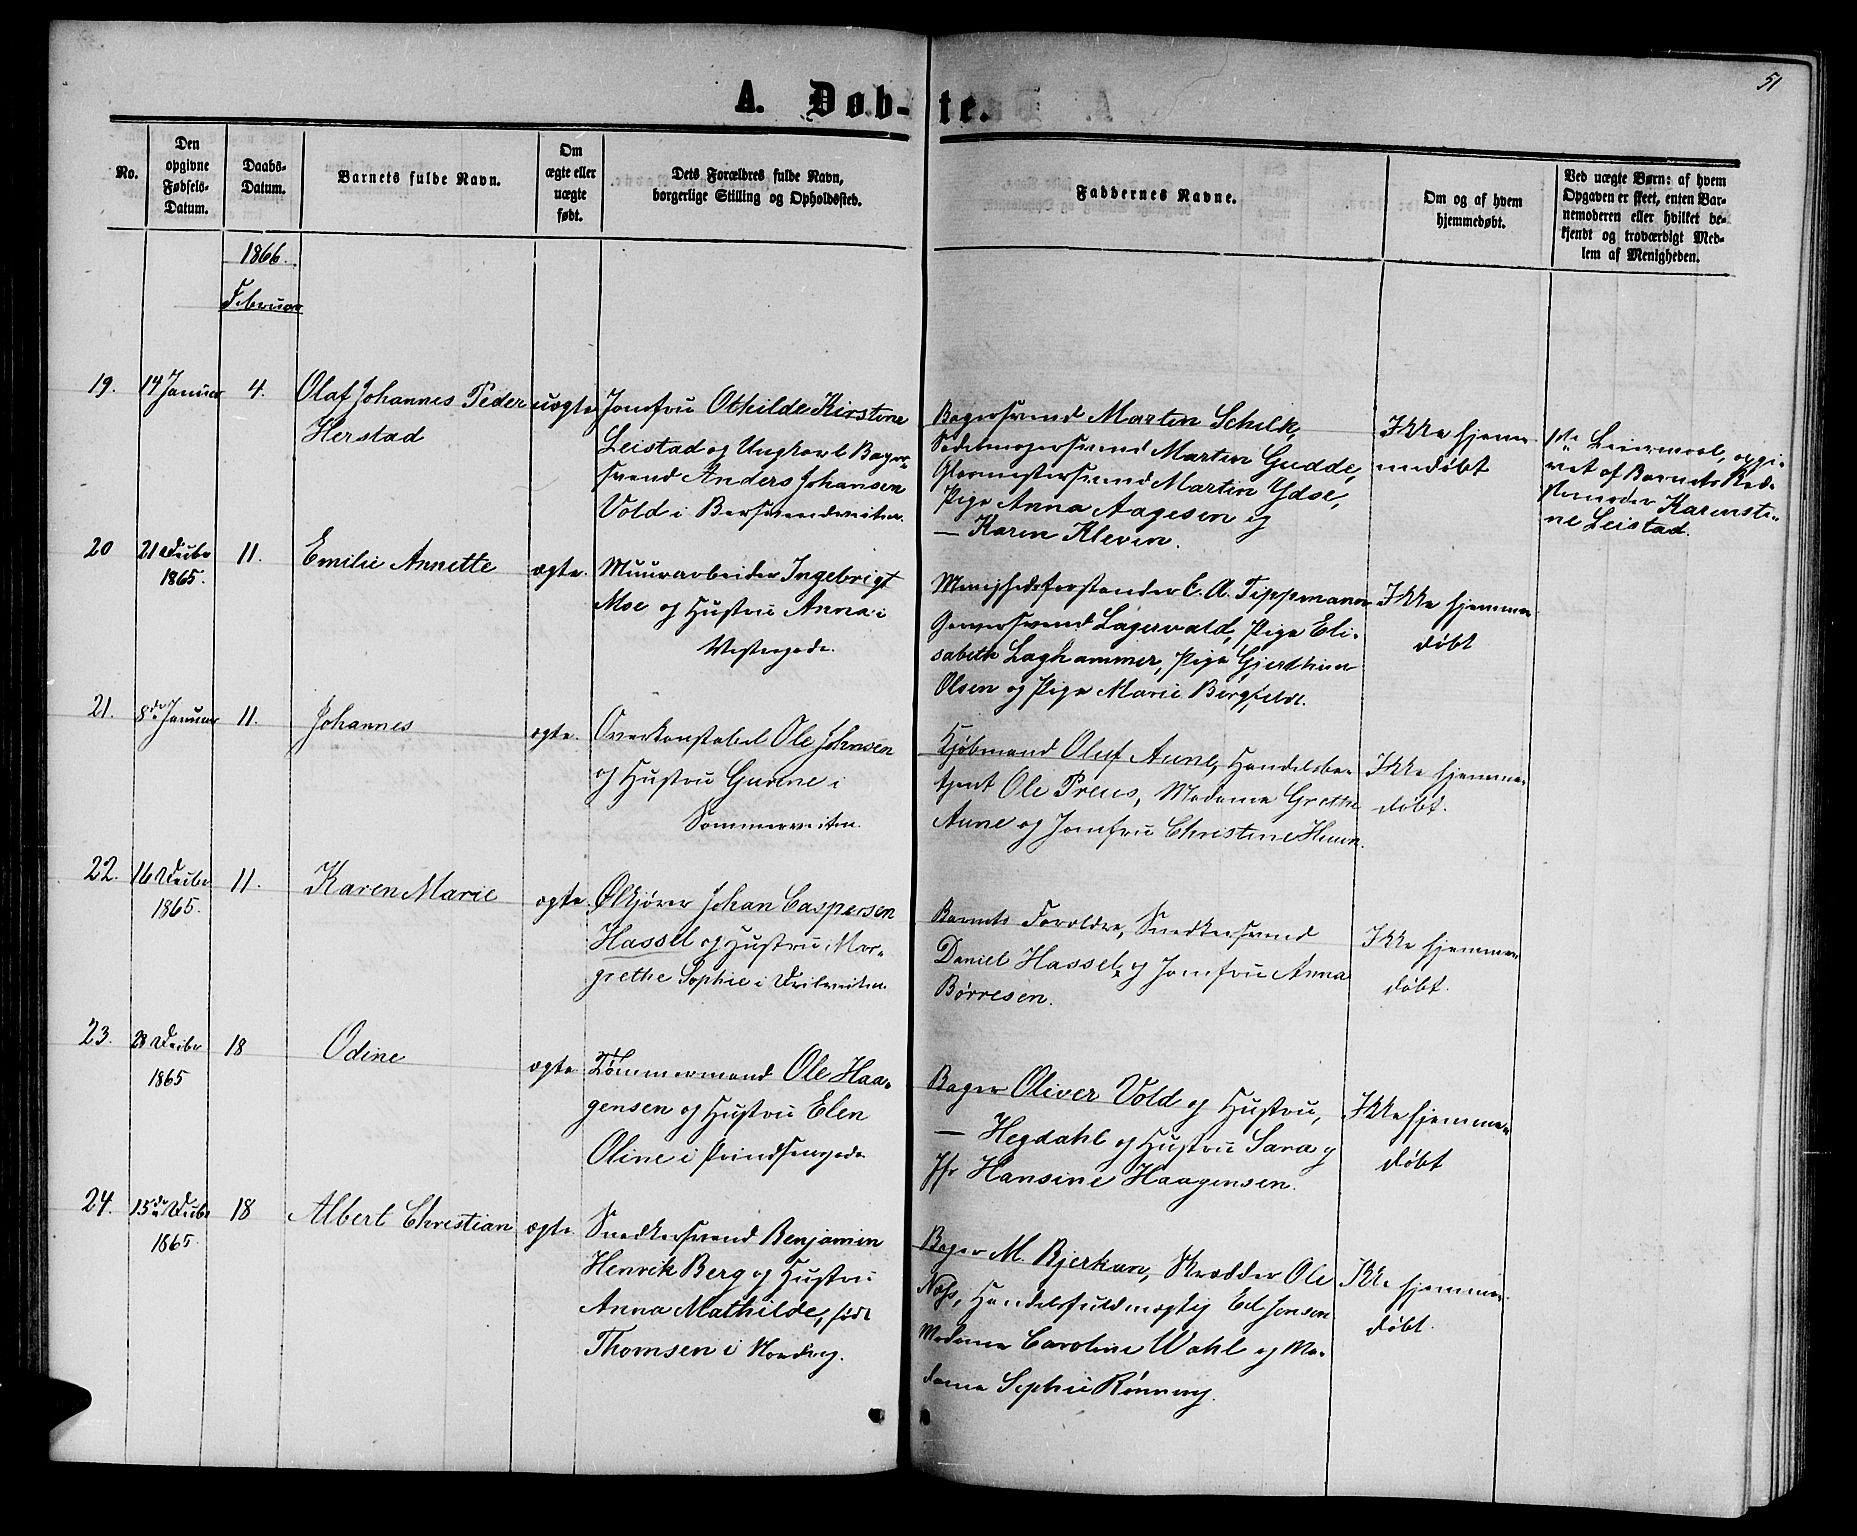 51
A. Døb-te.
No.
Den
opgivne
Fødsels-
Datum.
Daabs-
Datum.
Barnets fulde Navn.
Om
ægte eller
uægte
født.
Dets Forældres fulde Navn,
borgerlige Stilling og Opholdssted.
Faddernes Navne.
Om og af hvem
hjemmedøbt.
Ved uægte Børn: af hvem
Opgaven er skeet, enten Bar-
nemoderen eller hvilket be-
kjendt og troværdigt Med-
lem af Menigheden.
1866.
Februar
19.
14 Januar
4.
Olaf Johannes Peder
Herstad
uægte
Jomfru Othilde Kirstine
Leistad og Ungkarl Bager-
svend Anders Johansen
Vold i Bersvendveiten.
Bagersvend Martin Schilk,
Sadelmagersvend Martin Gudde,
Glarmestersvend Martin Ydse,
Pige Anna Aagesen og
— Karen Kleven.
Ikke hjem-
medøbt
1ste Leiermaal, opgi-
vet af Barnets Bed-
stemoder Karensti-
ne Leistad.
20
21 Decbr
1865.
11.
Emilie Annette
ægte.
Muurarbeider Ingebrigt
Moe og Hustru Anna i
Vestergade.
Menighedsforstander C. A. Tippmann
Garversvend Lagervald, Pige Eli-
sabeth Laghammer, Pige Gjerthine
Olsen og Pige Marie Bergfeldt.
Ikke hjemme
døbt
21.
8de Januar
11.
Johannes
ægte.
Overkonstabel Ole Johnsen
og Hustru Gunne i
Sommerveiten.
Kjøbmand Oluf Aune, Handelsbe-
tjent Ole Preus, Madame Grethe
Aune og Jomfru Christine Huun.
Ikke hjemme-
døbt.
22.
16 Decbr
1865.
11.
Karen Marie
ægte.
Ølkjører Johan Caspersen
Hassel og Hustru Mar-
grethe Sophie i Veiten
Barnets Forældre, Snedkersvend
Daniel Hassel og Jomfru Anna
Børresen.
Ikke hjemme-
døbt.
23.
28 Decbr
1865
18
Odine
ægte
Tømmermand Ole Haa-
gensen og Hustru Elen
Oline i Prindsensgade
Bager Oliver Vold og Hustru,
— Hegdahl og Hustru Sara og
Jfr Hansine Haagensen.
Ikke hjemme-
døbt
24.
15de Decbr
1865.
18
Albert Christian
ægte.
Snedkersvend Benjamin
Henrik Berg og Hustru
Anna Mathilde, født
Thomsen i Nordre g.
Bager M. Bjerkan, Skrædder Ole
Næss, Handelsfuldmægtig Ed Jensen
Madame Caroline Wahl og Ma-
dame Sophie Rønning.
Ikke hjemme-
døbt.